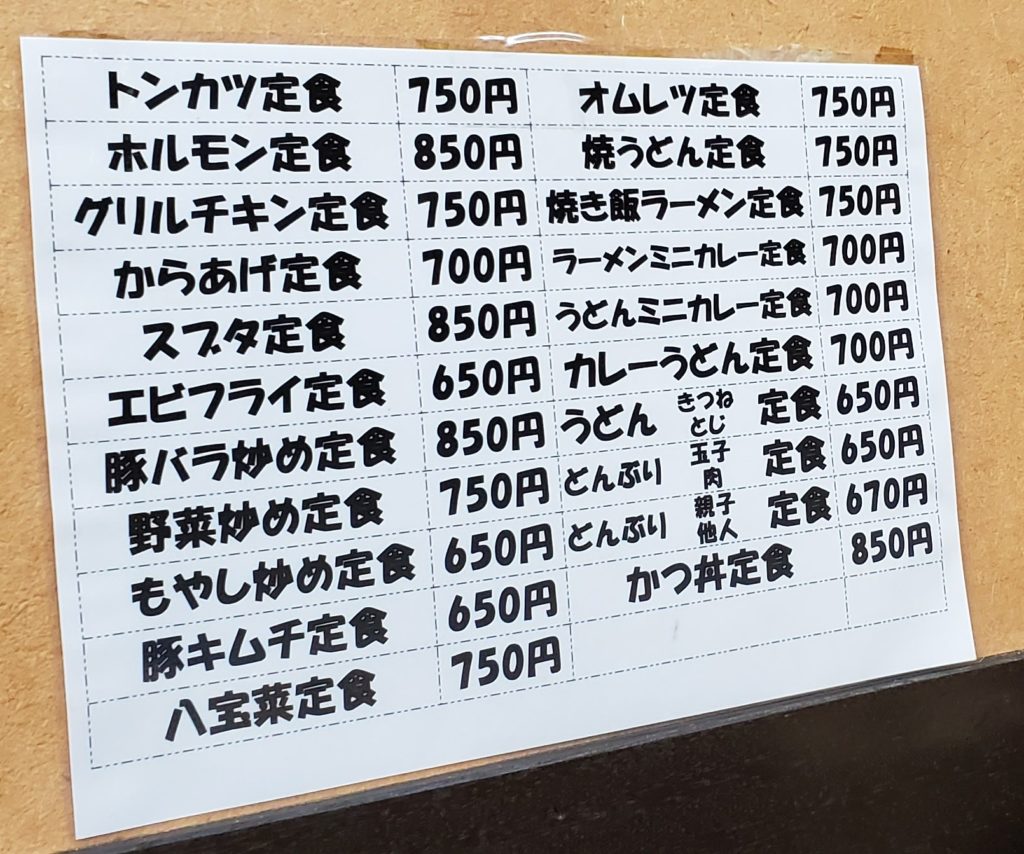 トンカツ定食 750円
ホルモン定食 850円
グリルチキン定食 750円
からあげ定食 700円
スブタ定食 850円
エビフライ定食 650円
豚バラ炒め定食 850円
野菜炒め定食 750円
もやし炒め定食 650円
豚キムチ定食 650円
八宝菜定食 750円
オムレツ定食 750円
焼うどん定食 750円
焼き飯ラーメン定食 750円
ラーメンミニカレー定食 700円
うどんミニカレー定食 700円
カレーうどん定食 700円
うどん きつね とじ 定食 650円
どんぶり 玉子 肉 定食 650円
どんぶり 親子 他人 定食 670円
かつ丼定食 850円